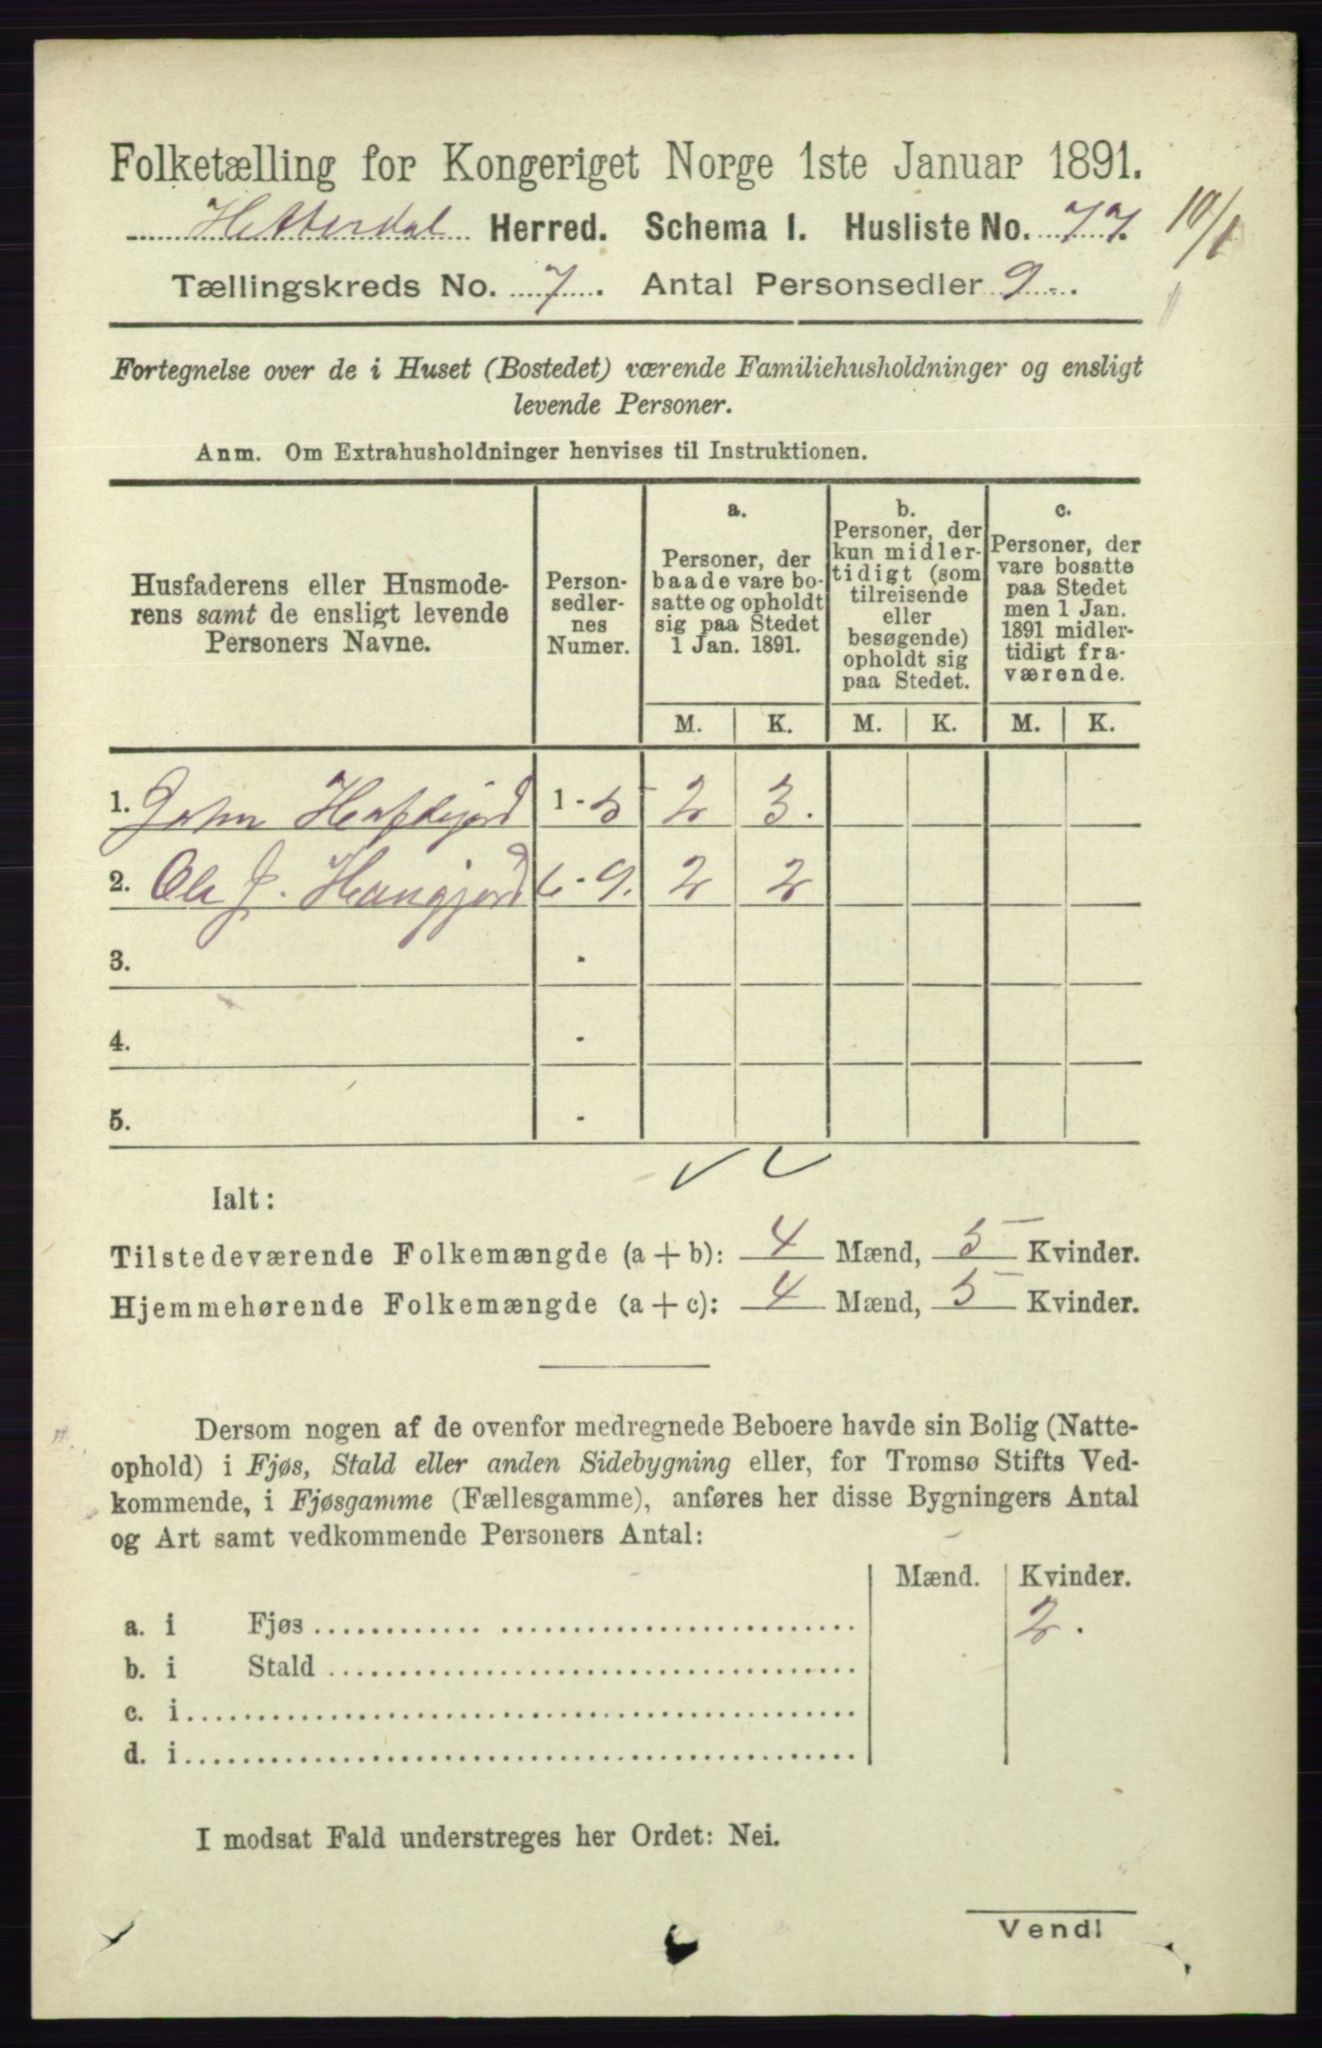 Folketælling for Kongeriget Norge 1ste Januar 1891.
Hitterdal Herred. Schema I. Husliste No. 77. 10/1
Tællingskreds No. 7. Antal Personsedler 9.
Fortegnelse over de i Huset (Bostedet) værende Familiehusholdninger og ensligt
levende Personer.
Anm. Om Extrahusholdninger henvises til Instruktionen.
Husfaderens eller Husmode-
rens samt de ensligt levende
Personers Navne.
Person-
sedler-
nes
Numer.
a.
Personer, der
baade vare bo-
satte og opholdt
sig paa Stedet
1 Jan. 1891.
b.
Personer, der
kun midler-
tidigt (som
tilreisende
eller
besøgende)
opholdt sig
paa Stedet.
c.
Personer, der
vare bosatte
paa Stedet
men 1 Jan.
1891 midler-
tidigt fra-
værende.
M. K. M. K. M. K.
1. John 1-5 2 3.
2. Ole J. 6-9. 2 2
3. -
4. -
5. -
Ialt:
Tilstedeværende Folkemængde (a + b): 4 Mænd, 5 Kvinder.
Hjemmehørende Folkemængde (a + c): 4 Mænd, 5 Kvinder.
Dersom nogen af de ovenfor medregnede Beboere havde sin Bolig (Natte-
ophold) i Fjøs, Stald eller anden Sidebygning eller, for Tromsø Stifts Ved-
kommende, i Fjøsgamme (Fællesgamme), anføres her disse Bygningers Antal
og Art samt vedkommende Personers Antal:
Mænd. Kvinder.
a. i Fjøs 2.
b. i Stald
c. i
d. i
I modsat Fald understreges her Ordet: Nei.
Vend!